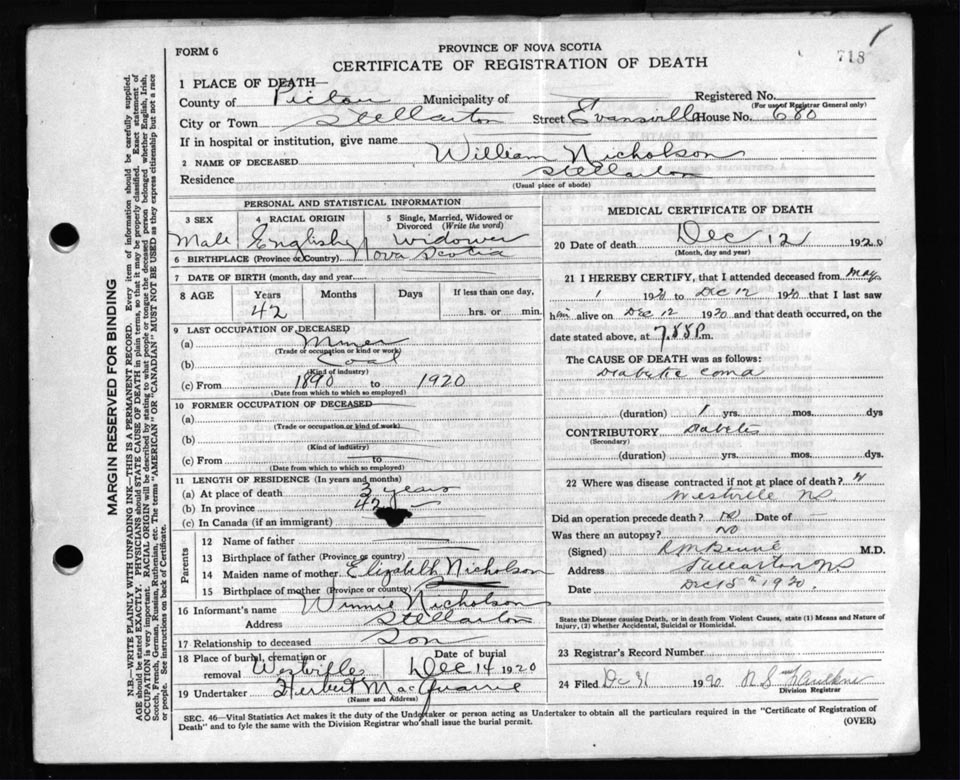 718
FORM 6
PROVINCE OF NOVA SCOTIA
CERTIFICATE OF REGISTRATION OF DEATH
1 PLACE OF DEATH—
County of Pictou Municipality of Registered No.
(For use of Registrar General only)
City or Town Stellarton Street Evansville House No. 680
If in hospital or institution, give name
2 NAME OF DECEASED William Nicholson
Residence Stellarton
(Usual place of abode)
PERSONAL AND STATISTICAL INFORMATION
3 SEX 4 RACIAL ORIGIN 5 Single, Married, Widowed or Divorced (Write the word)
Male English widower
6 BIRTHPLACE (Province or Country) Nova Scotia
7 DATE OF BIRTH (month, day and year)
8 AGE Years Months Days If less than one day,
42 hrs. or min.
9 LAST OCCUPATION OF DECEASED
(a) Miner
(Trade or occupation or kind or work)
(b) Coal
(Kind of industry)
(c) From 1890 to 1920
(Date from which to which so employed)
10 FORMER OCCUPATION OF DECEASED
(a)
(Trade or occupation or kind of work)
(b)
(Kind of industry)
(c) From to
(Date from which to which so employed)
11 LENGTH OF RESIDENCE (In years and months)
(a) At place of death 3 years
(b) In province 42
(c) In Canada (if an immigrant)
Parents
12 Name of father
13 Birthplace of father (Province or country)
14 Maiden name of mother Elizabeth Nicholson
15 Birthplace of mother (Province or country)
16 Informant's name Winnie Nicholson
Address Stellarton
17 Relationship to deceased Son
18 Place of burial, cremation or removal Westville Date of burial Dec 14 1920
19 Undertaker Herbert MacQuarrie
(Name and Address)
MEDICAL CERTIFICATE OF DEATH
20 Date of death Dec 12 1920
(Month, day and year)
21 I HEREBY CERTIFY, that I attended deceased from May
1 1920 to Dec 12 1920 that I last saw
him alive on Dec 12 1920 and that death occurred, on the
date stated above, at m.
The CAUSE OF DEATH was as follows:
Diabetic Coma
(duration) 1 yrs. mos. dys
CONTRIBUTORY Diabetes
(Secondary)
(duration) yrs. mos. dys.
22 Where was disease contracted if not at place of death?
Westville NS
Did an operation precede death? No Date of
Was there an autopsy? No
(Signed) M.D.
Address Stellarton NS
Date Dec 15th 1920
State the Disease causing Death, or in death from Violent Causes, state (1) Means and Nature of Injury, (2) whether Accidental, Suicidal or Homicidal.
23 Registrar's Record Number
24 Filed Dec 31 1920 Faulkner
Division Registrar
SEC. 46—Vital Statistics Act makes it the duty of the Undertaker or person acting as Undertaker to obtain all the particulars required in the "Certificate of Registration of
Death" and to fyle the same with the Division Registrar who shall issue the burial permit.
(OVER)
MARGIN RESERVED FOR BINDING
N.B.—WRITE PLAINLY WITH UNFADING INK—THIS IS A PERMANENT RECORD. Every item of information should be carefully supplied.
AGE should be stated EXACTLY. PHYSICIANS should STATE CAUSE OF DEATH in plain terms, so that it may be properly classified. Exact statement of
OCCUPATION is very important. RACIAL ORIGIN will be described by stating to what people or tongue the deceased person belonged whether English, Irish,
Scotch, French, German, Russian, Ruthenian, etc. The terms "AMERICAN" OR "CANADIAN" MUST NOT BE USED as they express citizenship but not a race
or people. See instructions on back of Certificate.